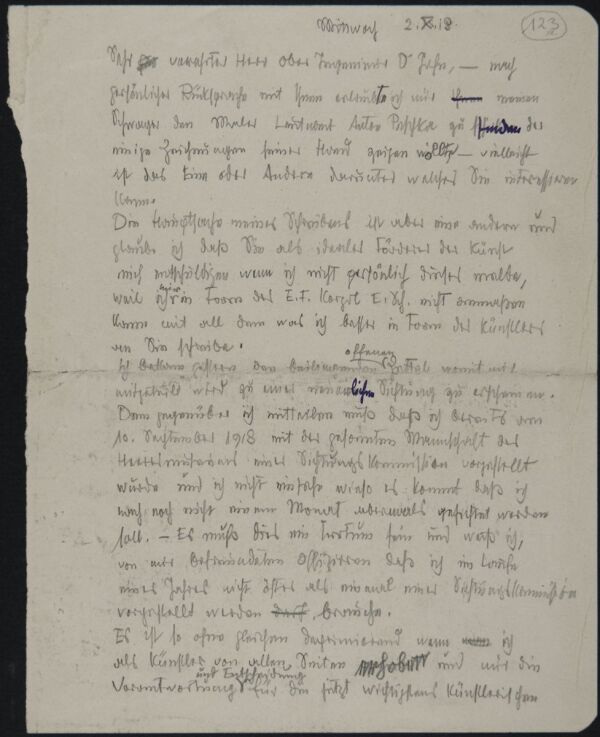 Mittwoch 2. X. 18. 123
Sehr verehrter Herr Ober Ingenieur Dr Jahn, — nach
persönlicher Rücksprache mit Ihnen erlaubte ich mir meinen
Schwager den Maler Leutnant Anton Peschka zu senden der
einige Zeichnungen seiner Hand zeigen wollte — vielleicht
ist das Eine oder Andere darunter welches Sie interessieren
kann.
Die Hauptsache meines Schreibens ist aber eine andere und
glaube ich daß Sie als idealer Förderer der Kunst
mich entschuldigen wenn ich nicht persönlich dieses melde,
weil ich in Form des E. F. Korpl. E. Sch. nicht anmaßen
kann mit all dem was ich besser in Form des Künstlers
an Sie schreibe.
Ich bekam gestern den beiliegenden offenen Zettel womit mir
mitgeteilt wird zu einer neuerlichen Sichtung zu erscheinen.
Dem gegenüber ich mitteilen muß daß ich bereits am
10. September 1918 mit der gesamten Mannschaft des
Heeresmuseums einer Sichtungskommission vorgestellt
wurde und ich nicht einsehe wieso es kommt daß ich
nach noch nicht einem Monat abermals gesichtet werden
soll. — Es muß dies ein Irrtum sein und weiß ich,
von mir befreundeten Offizieren daß ich im Laufe
eines Jahres nicht öfter als einmal einer Sichtungskommission
vorgestellt werden darf, brauche.
Es ist so ohne gleichen deprimierend wenn ich
als Künstler von allen Seiten erhoben und mir die
Verantwortung und Entscheidung für die jetzt wichtigsten künstlerischen